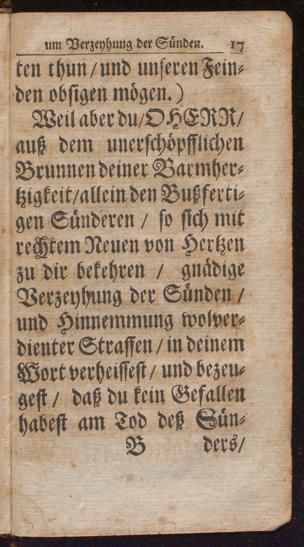 um Verzeyhung der Sünden. 17
ten thun / und unseren Fein-
den obsigen mögen. )
Weil aber du / O HERR /
auß dem unerschöpfflichen
Brunnen deiner Barmher-
tzigkeit / allein den Bußferti-
gen Sünderen / so sich mit
rechtem Neuen von Hertzen
zu dir bekehren / gnädige
Verzeyhung der Sünden /
und Hinnemmung wolver-
dienter Straffen / in deinem
Wort verheissest / und bezeu-
gest / daß du kein Gefallen
habest am Tod deß Sün-
B ders /